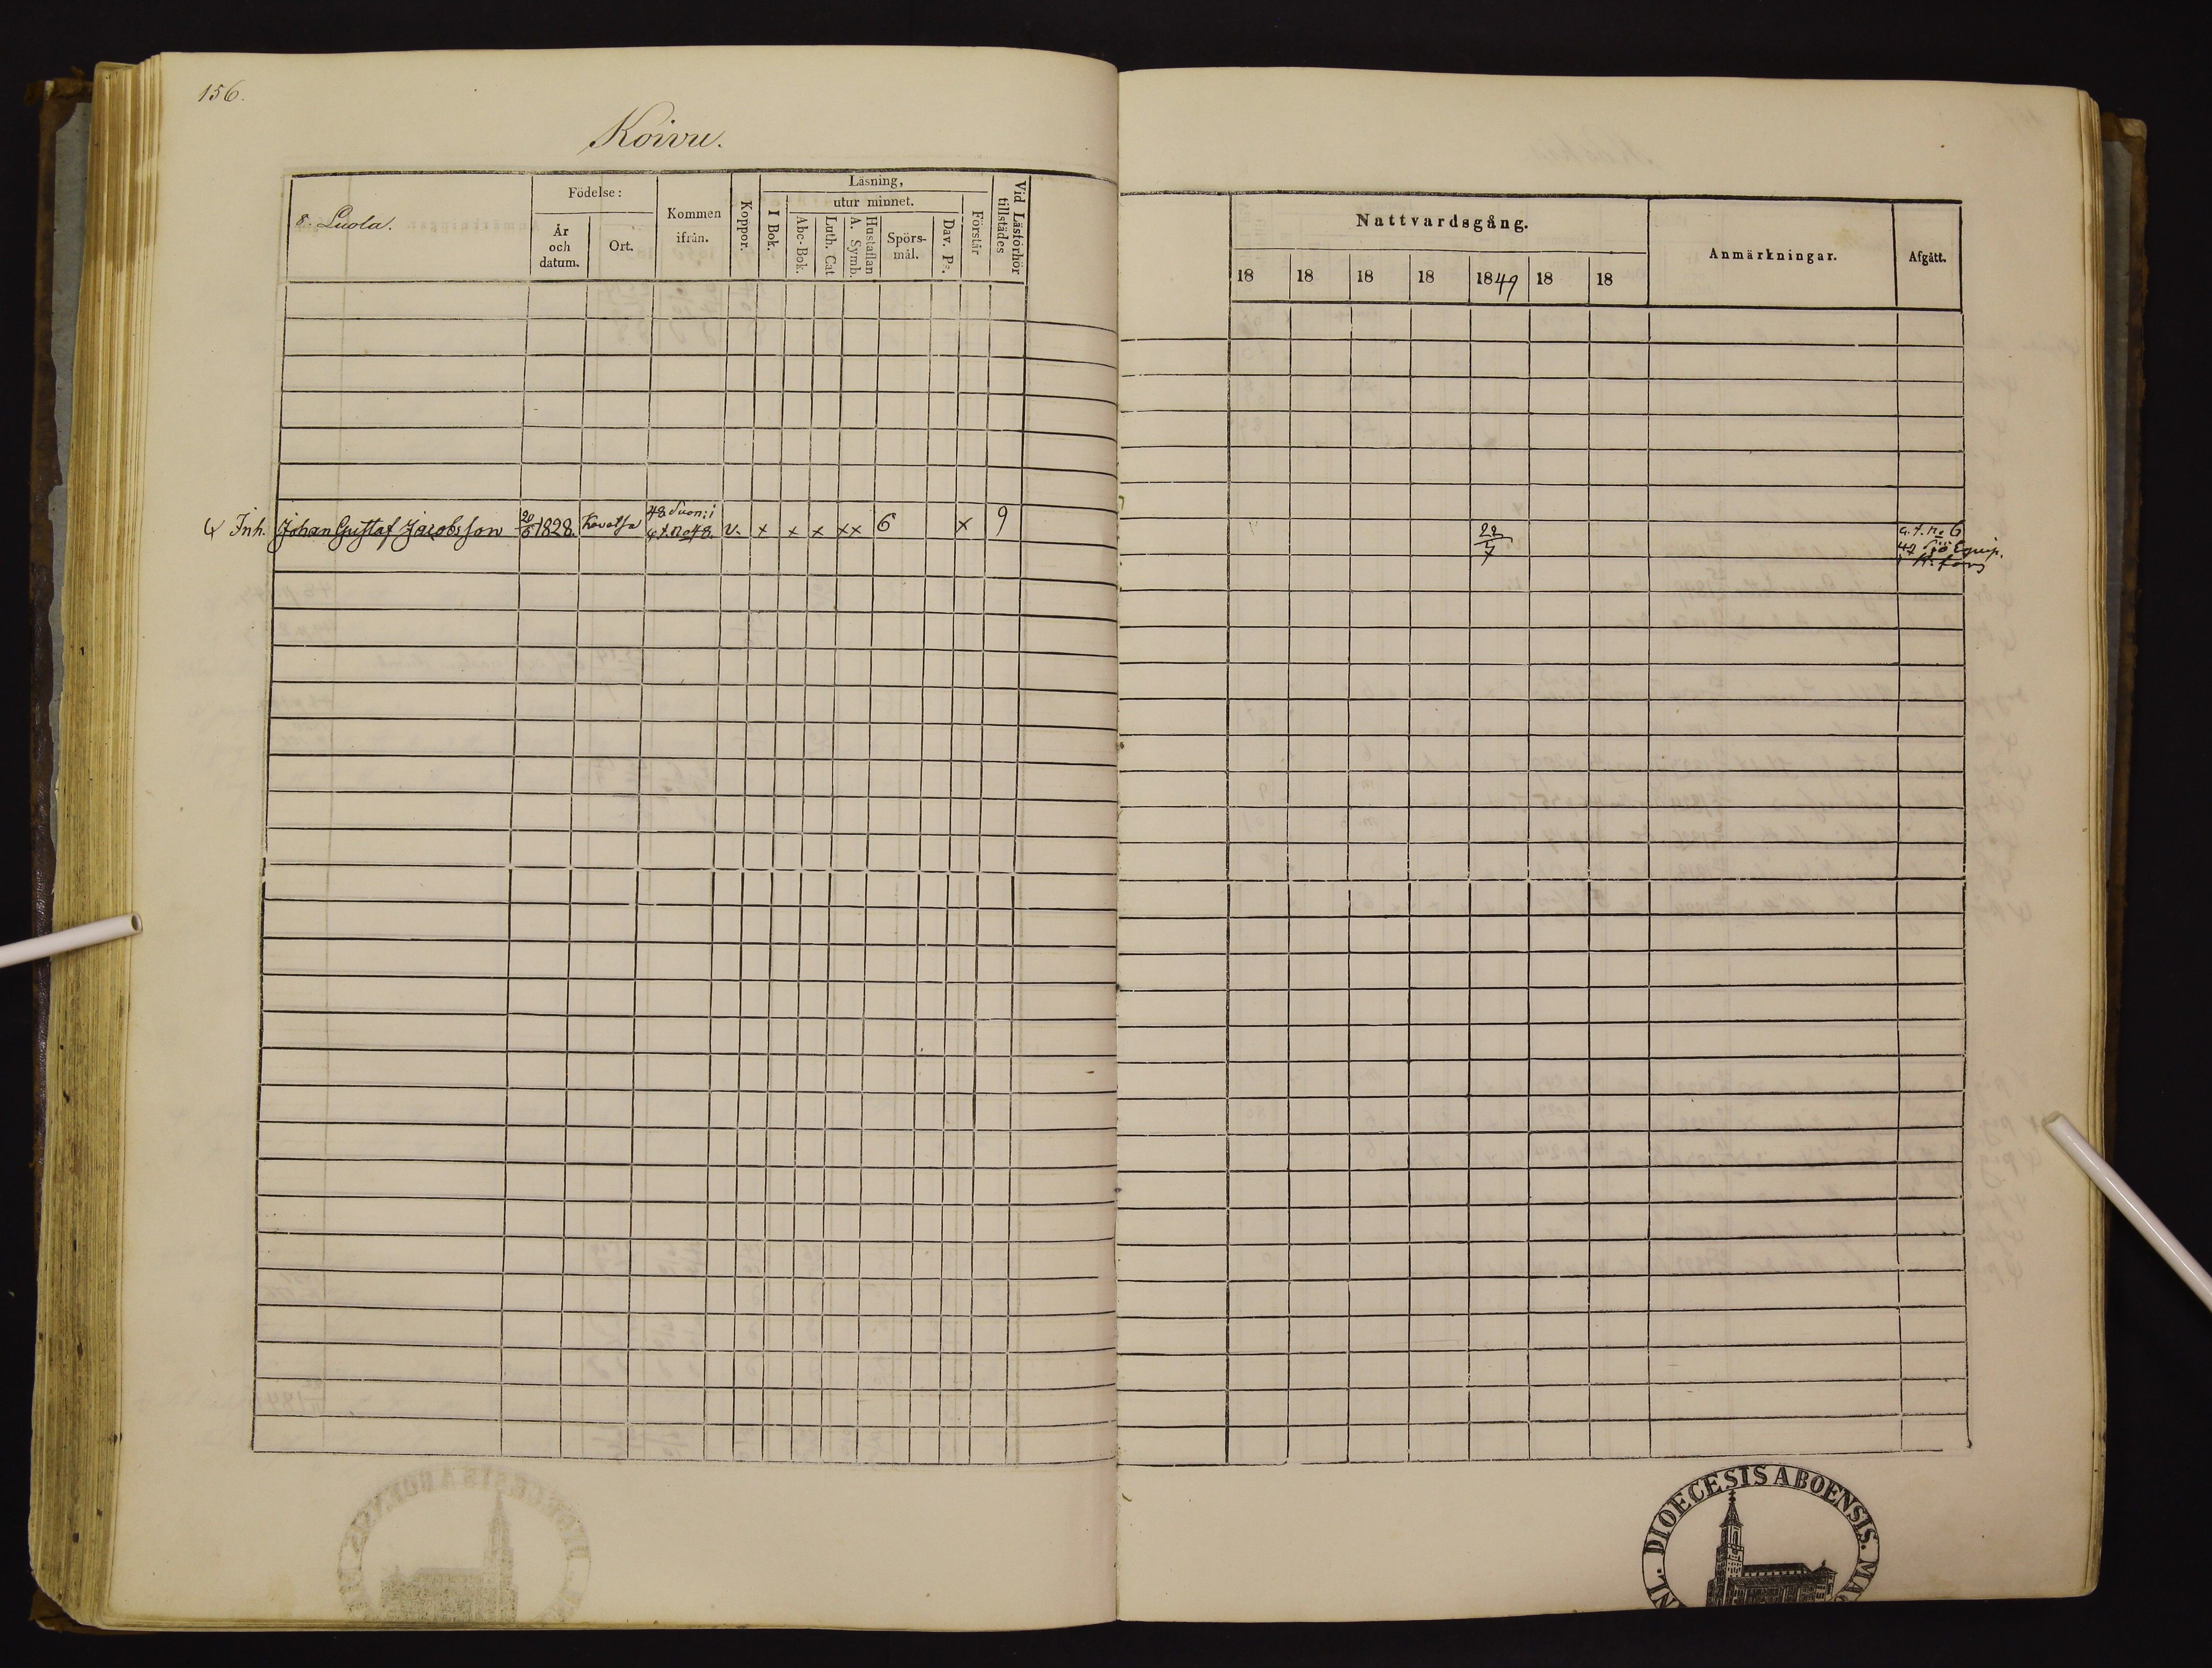 156.
Koivu.
8. Luola.
Födelse:
År och datum.
Ort.
Kommen ifrån.
Koppor.
Läsning,
I Bok.
utur minnet.
Abc-Bok.
Luth. Cat
Hustaflan A. Symb.
Spörs-mål.
Dav. Ps.
Förstår
Vid Läsförhör tillstädes
Nattvardsgång.
18 18 18 18 1849 18 18
Anmärkningar.
Afgått.
Inh. Johan Gustaf Jacobsson 20/6 1828. 48 v. x x x xx 6 x 9
22/7
a. t. no 6
49 Sjö Equip.
H:fors
DIOECESIS ABOENSIS.